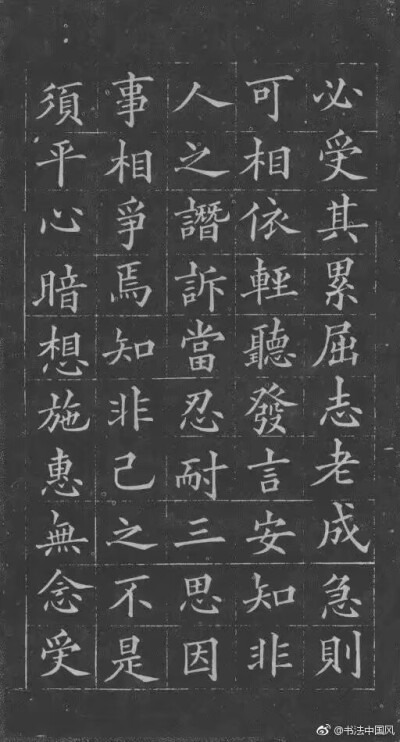 必受其累屈志老成急則
可相依輕聽發言安知非
人之譖訴當忍耐三思因
事相爭焉知非己之不是
須平心暗想施惠無念受
@书法中国风